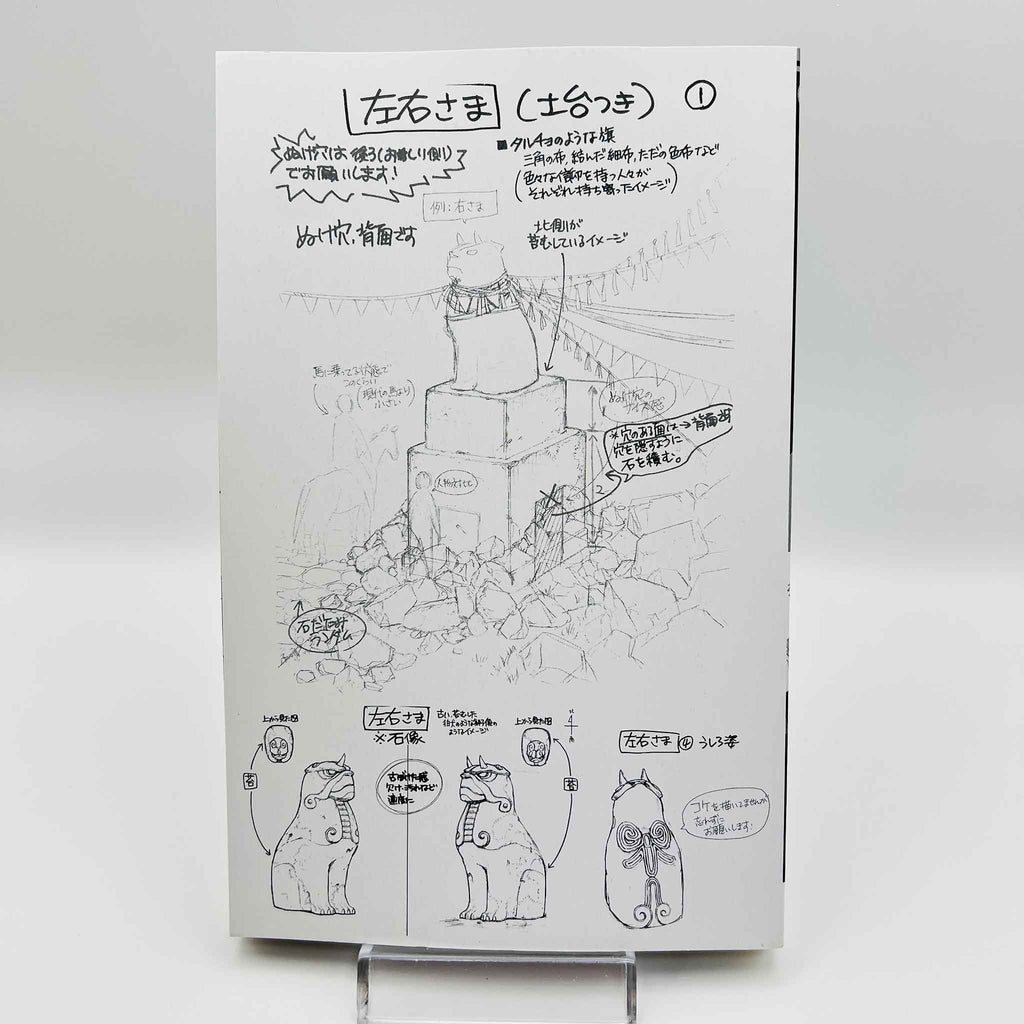 左右さま (土台つき) ①
ぬけ穴は後ろ(お尻側)
でお願いします!
ぬけ穴、背面です
■タルチョのような旗
三角の布、結んだ細布、ただの色布など
(色々な信仰を持つ人々が
それぞれ持ち寄ったイメージ)
例:右さま
北側が
苔むしているイメージ
馬に乗ってる状態で
このくらい
現代の馬より
小さい
ぬけ穴の
サイズ感
※穴のある面は→背面です
穴を隠すように
石を積む。
人物対比
石だたみ
ランダム
左右さま
※石像
古い、苔むした
狛犬のような獅子像の
ようなイメージ
上から見た図
苔
古ぼけた感
欠け、汚れなど
適度に
上から見た図
苔
左右さま ④ うしろ姿
コケを描いてませんが
忘れずに
お願いします!